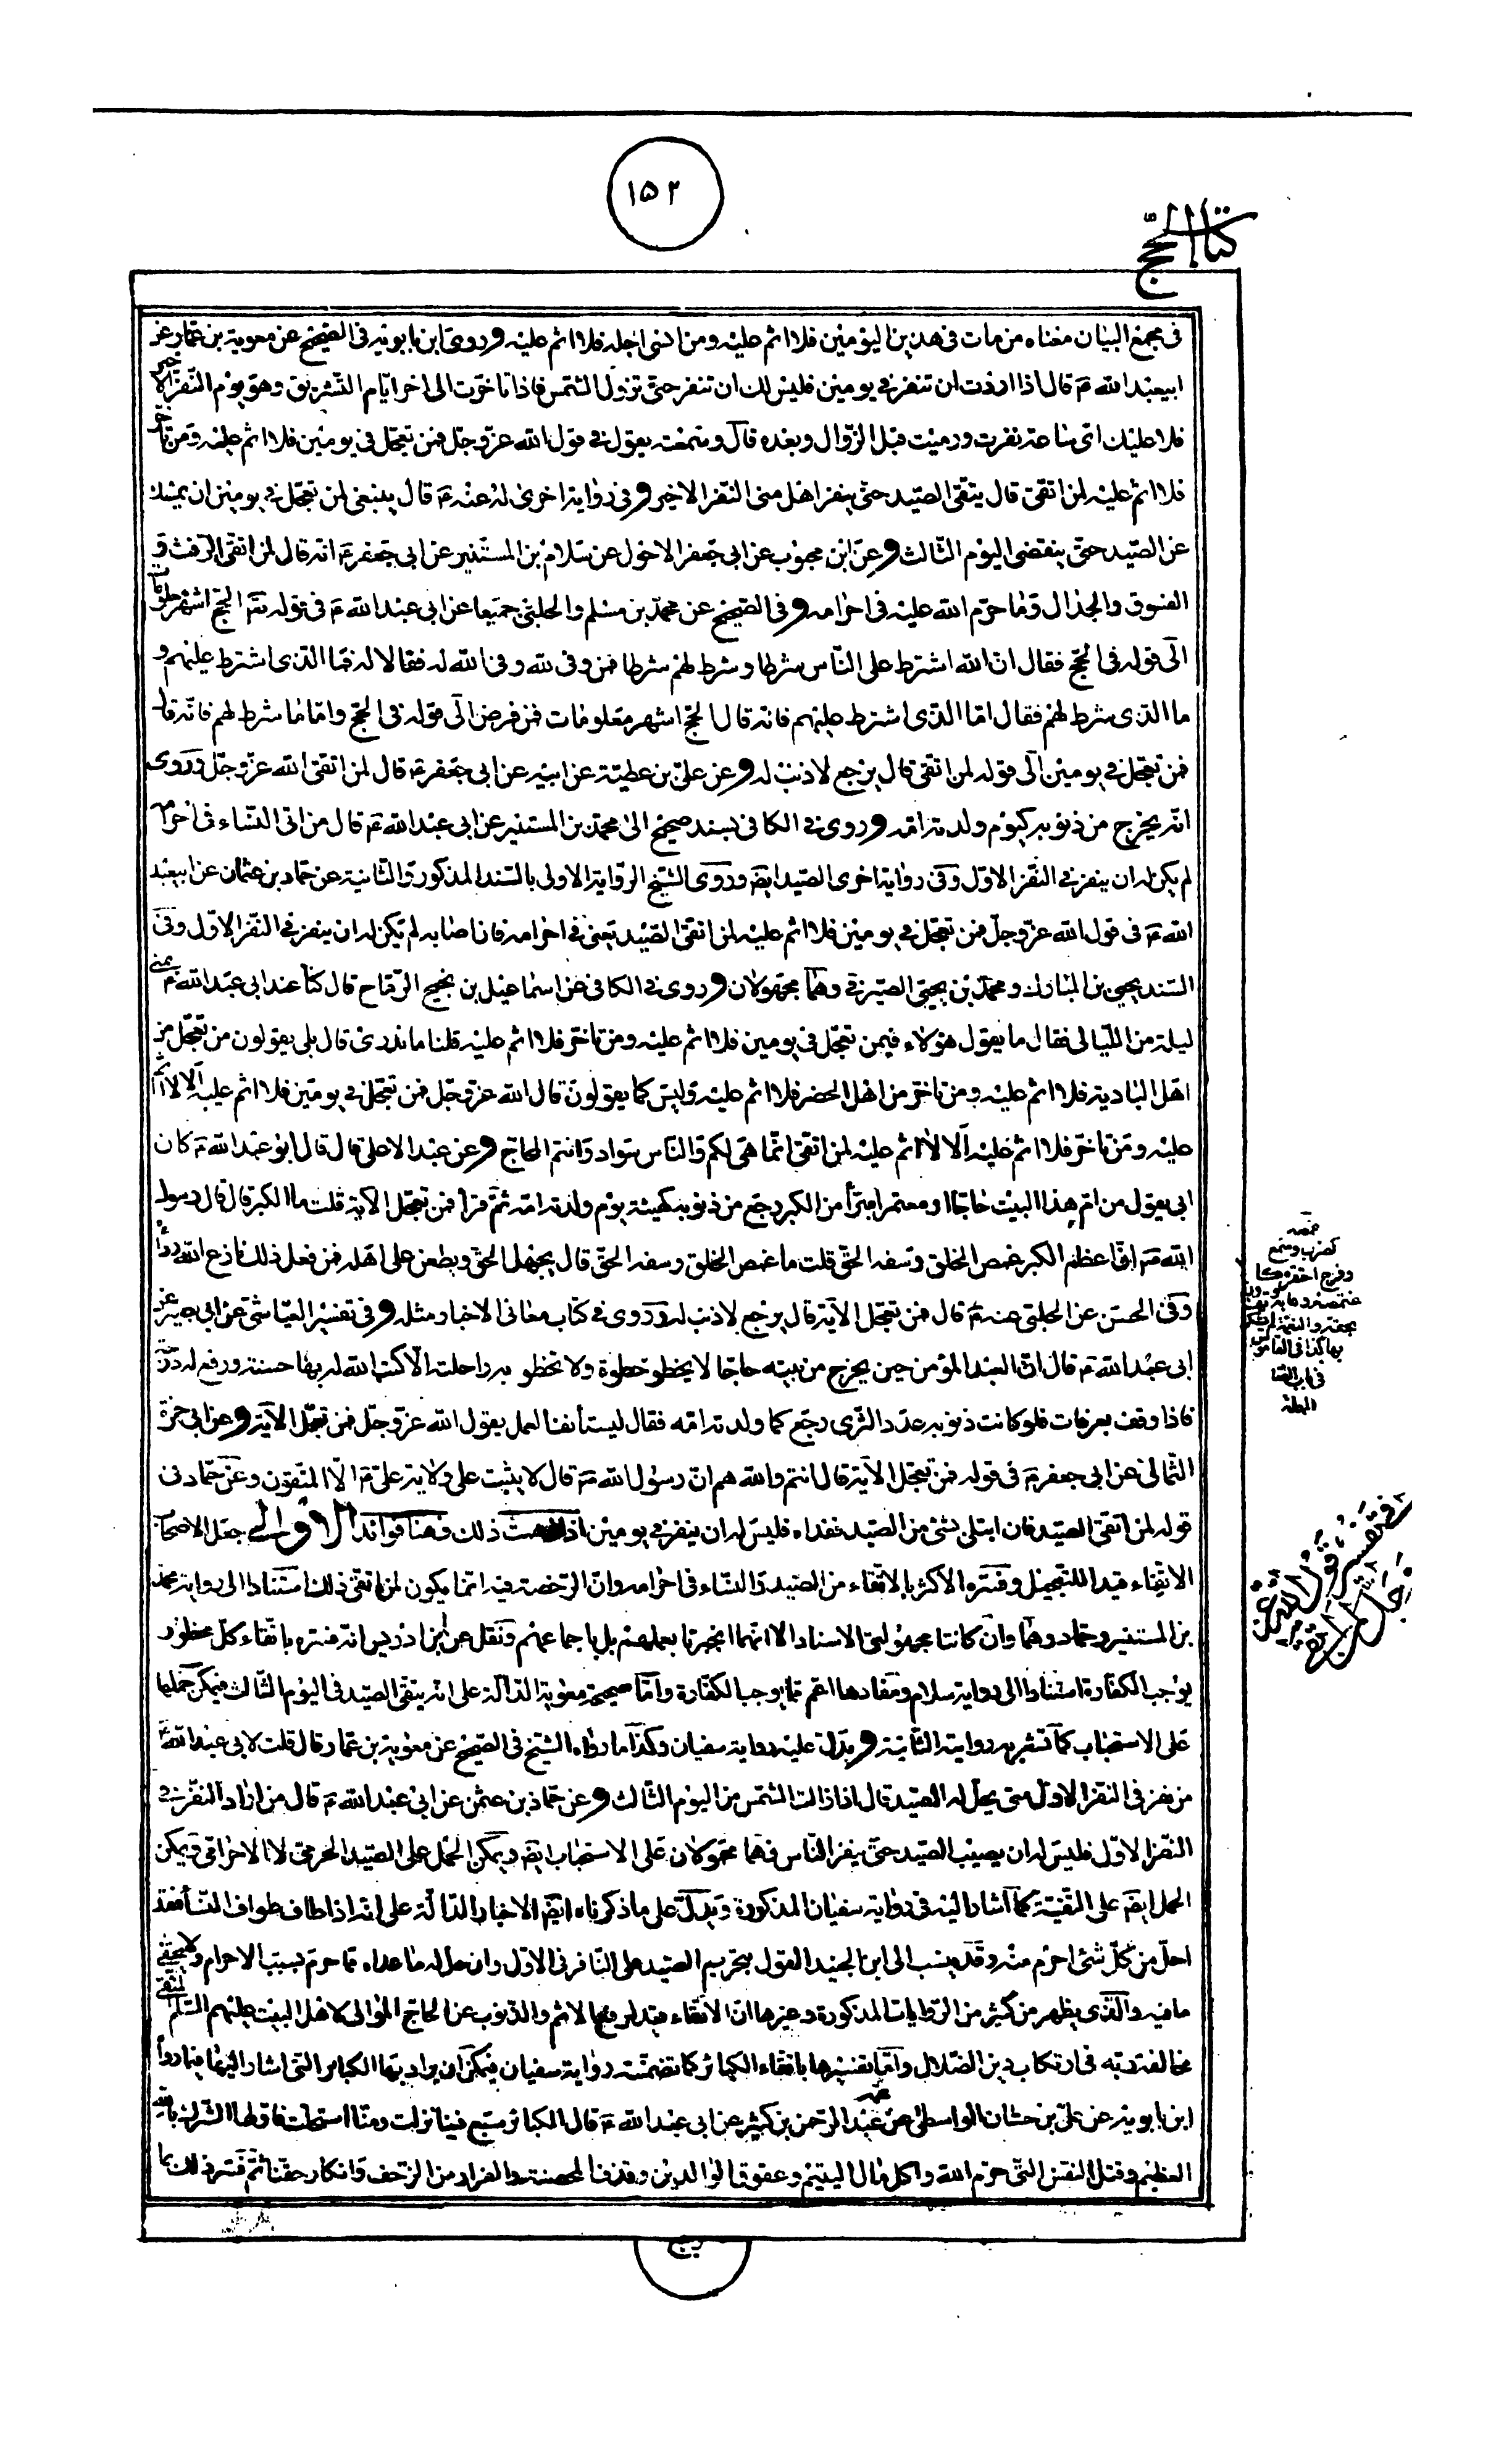 ١۵٢
كتاب الحج
فى مجمع البيان معناه من مات فى هذين اليومين فلا اثم عليه ومن انسئ اجله فلا اثم عليه وروى ابن بابويه فى الصحيح عن معوية بن عمار عن
ابيعبد الله ع قال اذا اردت ان تنفر فى يومين فليس لك ان تنفر حتى تزول الشمس فاذا تاخرت الى اخر ايام التشريق وهو يوم النفر الاخير
فلا عليك اى ساعة نفرت ورميت قبل الزوال وبعده قال وسمعته يقول فى قول الله عز وجل فمن تعجل فى يومين فلا اثم عليه ومن تاخر
فلا اثم عليه لمن اتقى قال يتقى الصيد حتى ينفر اهل منى النفر الاخير وفى رواية اخرى له عنه ع قال ينبغى لمن تعجل فى يومين ان يمسك
عن الصيد حتى ينقضى اليوم الثالث وعن ابن محبوب عن ابى جعفر الاحول عن سلام بن المستنير عن ابى جعفر ع انه قال لمن اتقى الرفث و
الفسوق والجدال وما حرم الله عليه فى احرامه وفى الصحيح عن محمد بن مسلم والحلبى جميعا عن ابى عبد الله ع فى قوله تعا الحج اشهر معلومات
الى قوله فى الحج فقال ان الله اشترط على الناس شرطا وشرط لهم شرطا فمن وفى لله وفى الله له فقالا له فما الذى اشترط عليهم و
ما الذى شرط لهم فقال اما الذى اشترط عليهم فانه قال الحج اشهر معلومات فمن فرض الى قوله فى الحج واما ما شرط لهم فانه قال
فمن تعجل فى يومين الى قوله لمن اتقى قال يرجع لا ذنب له وعن على بن عطية عن ابيه عن ابى جعفر ع قال لمن اتقى الله عز وجل وروى
انه يخرج من ذنوبه كيوم ولدته امه وروى فى الكافى بسند صحيح الى محمد بن المستنير عن ابى عبد الله ع قال من اتى النساء فى احرامه
لم يكن له ان ينفر فى النفر الاول وفى رواية اخرى الصيد ايضا وروى الشيخ الرواية الاولى بالسند المذكور والثانية عن حماد بن عثمان عن ابيعبد
الله ع فى قول الله عز وجل فمن تعجل فى يومين فلا اثم عليه لمن اتقى الصيد يعنى فى احرامه فان اصابه لم يكن له ان ينفر فى النفر الاول وفى
السند يحيى بن المبارك ومحمد بن يحيى الصيرفى وهما مجهولان وروى فى الكافى عن اسماعيل بن نجيح الرماح قال كنا عند ابى عبد الله ع بمنى
ليلة من الليالى فقال ما يقول هؤلاء فيمن تعجل فى يومين فلا اثم عليه ومن تاخر فلا اثم عليه قلنا ما ندرى قال بلى يقولون من تعجل من
اهل البادية فلا اثم عليه ومن تاخر من اهل الحضر فلا اثم عليه وليس كما يقولون قال الله عز وجل فمن تعجل فى يومين فلا اثم عليه الا لا اثم
عليه ومن تاخر فلا اثم عليه الا لا اثم عليه لمن اتقى انما هى لكم والناس سواد وانتم الحاج وعن عبد الاعلى قال قال ابو عبد الله ع كان
ابى يقول من ام هذا البيت حاجا او معتمرا مبرأ من الكبر رجع من ذنوبه كهيئة يوم ولدته امه ثم قرأ فمن تعجل الاية قلت ما الكبر قال قال رسول
الله ص ان اعظم الكبر غمص الخلق وسفه الحق قلت ما غمص الخلق وسفه الحق قال يجهل الحق ويطعن على اهله فمن فعل ذلك نازع الله رداءه
وفى الحسن عن الحلبى عنه ع قال فمن تعجل الاية قال يرجع لا ذنب له وروى فى كتاب معانى الاخبار مثله وفى تفسير العياشى عن ابى بصير عن
ابى عبد الله ع قال ان العبد المؤمن حين يخرج من بيته حاجا لا يخطو خطوة ولا تخطو به راحلته الا كتب الله له بها حسنة ورفع له درجة
فاذا وقف بعرفات فلو كانت ذنوبه عدد الثرى رجع كما ولدته امه فقال ليستأنف العمل يقول الله عز وجل فمن تعجل الاية وعن ابى حمزة
الثمالى عن ابى جعفر ع فى قوله فمن تعجل الاية قال انتم والله هم ان رسول الله ص قال لا يثبت على ولاية على ع الا المتقون وعن حماد فى
قوله لمن اتقى الصيد فان ابتلى بشئ من الصيد ففداه فليس له ان ينفر فى يومين اذا ذلك وهنا فوائد الاولى جعل الاصحاب
الاتقاء قيدا للتعجيل وفسره الاكثر بالاتقاء من الصيد والنساء فى احرامه وان الرخصة فيه انما يكون لمن اتقى ذلك استنادا الى رواية محمد
بن المستنير وحماد وهما وان كانتا مجهولتى الاسناد الا انهما انجبرتا بعملهم بل باجماعهم ونقل عن ابن ادريس انه فسره باتقاء كل محظور
يوجب الكفارة استنادا الى رواية سلام ومفادها اعم مما يوجب الكفارة واما صحيحة معوية الدالة على انه يتقى الصيد فى اليوم الثالث فيمكن حملها
على الاستحباب كما تشعر به روايته الثانية ويدل عليه رواية سفيان وكذا ما رواه الشيخ فى الصحيح عن معوية بن عمار قال قلت لابى عبد الله ع
من نفر فى النفر الاول متى يحل له الصيد قال اذا زالت الشمس من اليوم الثالث وعن حماد بن عثمن عن ابى عبد الله ع قال من اراد النفر فى
النفر الاول فليس له ان يصيب الصيد حتى ينفر الناس فهما محمولان على الاستحباب ايضا ويمكن الحمل على الصيد الحرمى لا الاحرامى ويمكن
الحمل ايضا على التقية كما اشار اليه فى رواية سفيان المذكورة ويدل على ما ذكرناه ايضا الاخبار الدالة على انه اذا طاف طواف النسأ فقد
احل من كل شئ احرم منه وقد ينسب الى ابن الجنيد القول بتحريم الصيد على النافر فى الاول وان حل له ما عداه مما حرم بسبب الاحرام ولا يخفى
ما فيه والذى يظهر من كثير من الروايات المذكورة وغيرها ان الاتقاء قيد لرفع الاثم والذنوب عن الحاج الموالى لاهل البيت عليهم السلم المتقى
مخالفة ربه فى ارتكاب دين الضلال واما تفسيرها باتقاء الكبائر كما تضمنته رواية سفيان فيمكن ان يراد بها الكبائر التى اشار اليها فيما رواه
ابن بابويه عن على بن حسان الواسطى عن عمه عبد الرحمن بن كثير عن ابى عبد الله ع قال الكبائر سبع فينا نزلت ومنا استحلت فاولها الشرك بالله
العظيم وقتل النفس التى حرم الله واكل مال اليتيم وعقوق الوالدين وقذف المحصنة والفرار من الزحف وانكار حقنا ثم فسر ذلك بما
غمصه
كضرب وسمع
وفرح احتقره كا
غتمصه وعابه وتهاون
بحقه والنعمة لم يشكر
بها كذا فى القاموس
فى باب الصاد
المهملة
فى تفسير قول الله عز
وجل لمن اتقى